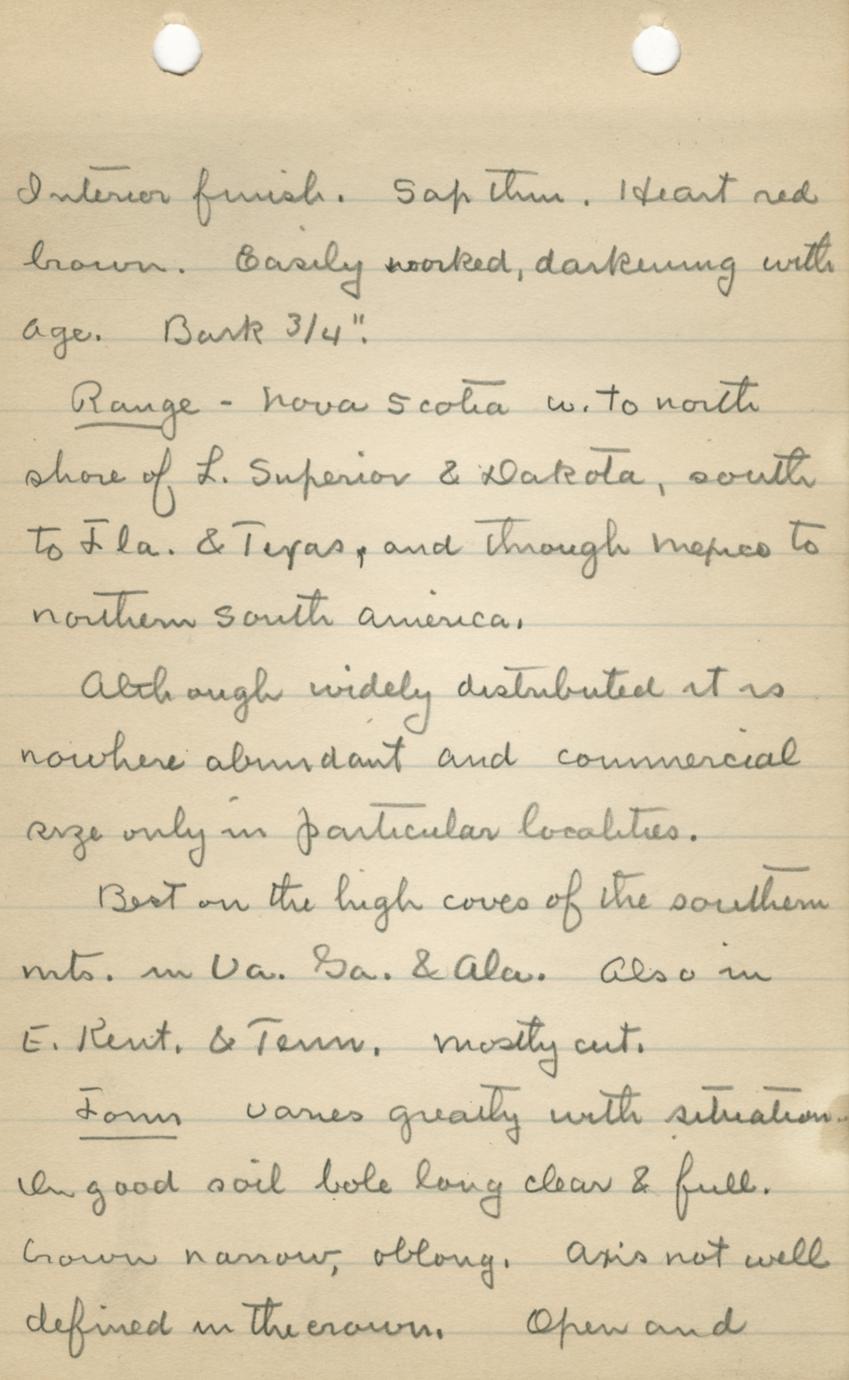 Interior finish. Sap thin. Heart red
brown. Easily worked, darkening with
age. Bark 3/4".
Range - Nova Scotia w. to north
shore of L. Superior & Dakota, south
to Fla. & Texas, and through Mexico to
northern South America.
Although widely distributed it is
nowhere abundant and commercial
size only in particular localities.
Best on the high coves of the southern
mts. in Va. Ga. & Ala. Also in
E. Kent. & Tenn. Mostly cut.
Form varies greatly with situation.
On good soil bole long clear & full.
Crown narrow, oblong. Axis not well
defined in the crown. Open and